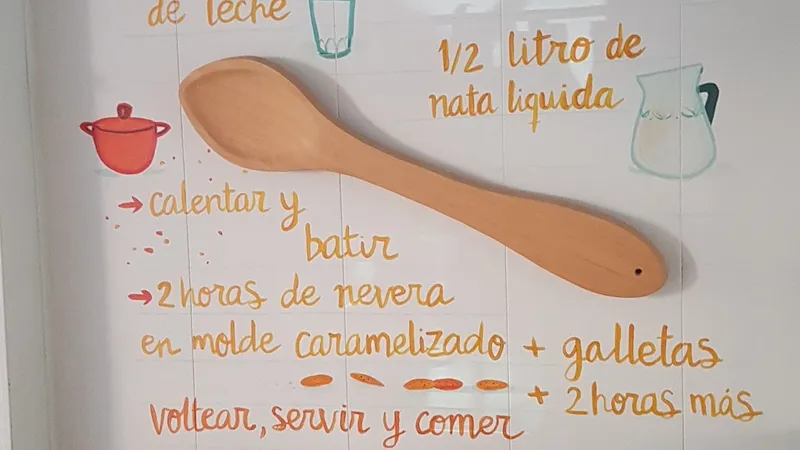 de leche
1/2 litro de
nata liquida
→ calentar y
batir
→ 2 horas de nevera
en molde caramelizado + galletas
+ 2 horas más
voltear, servir y comer